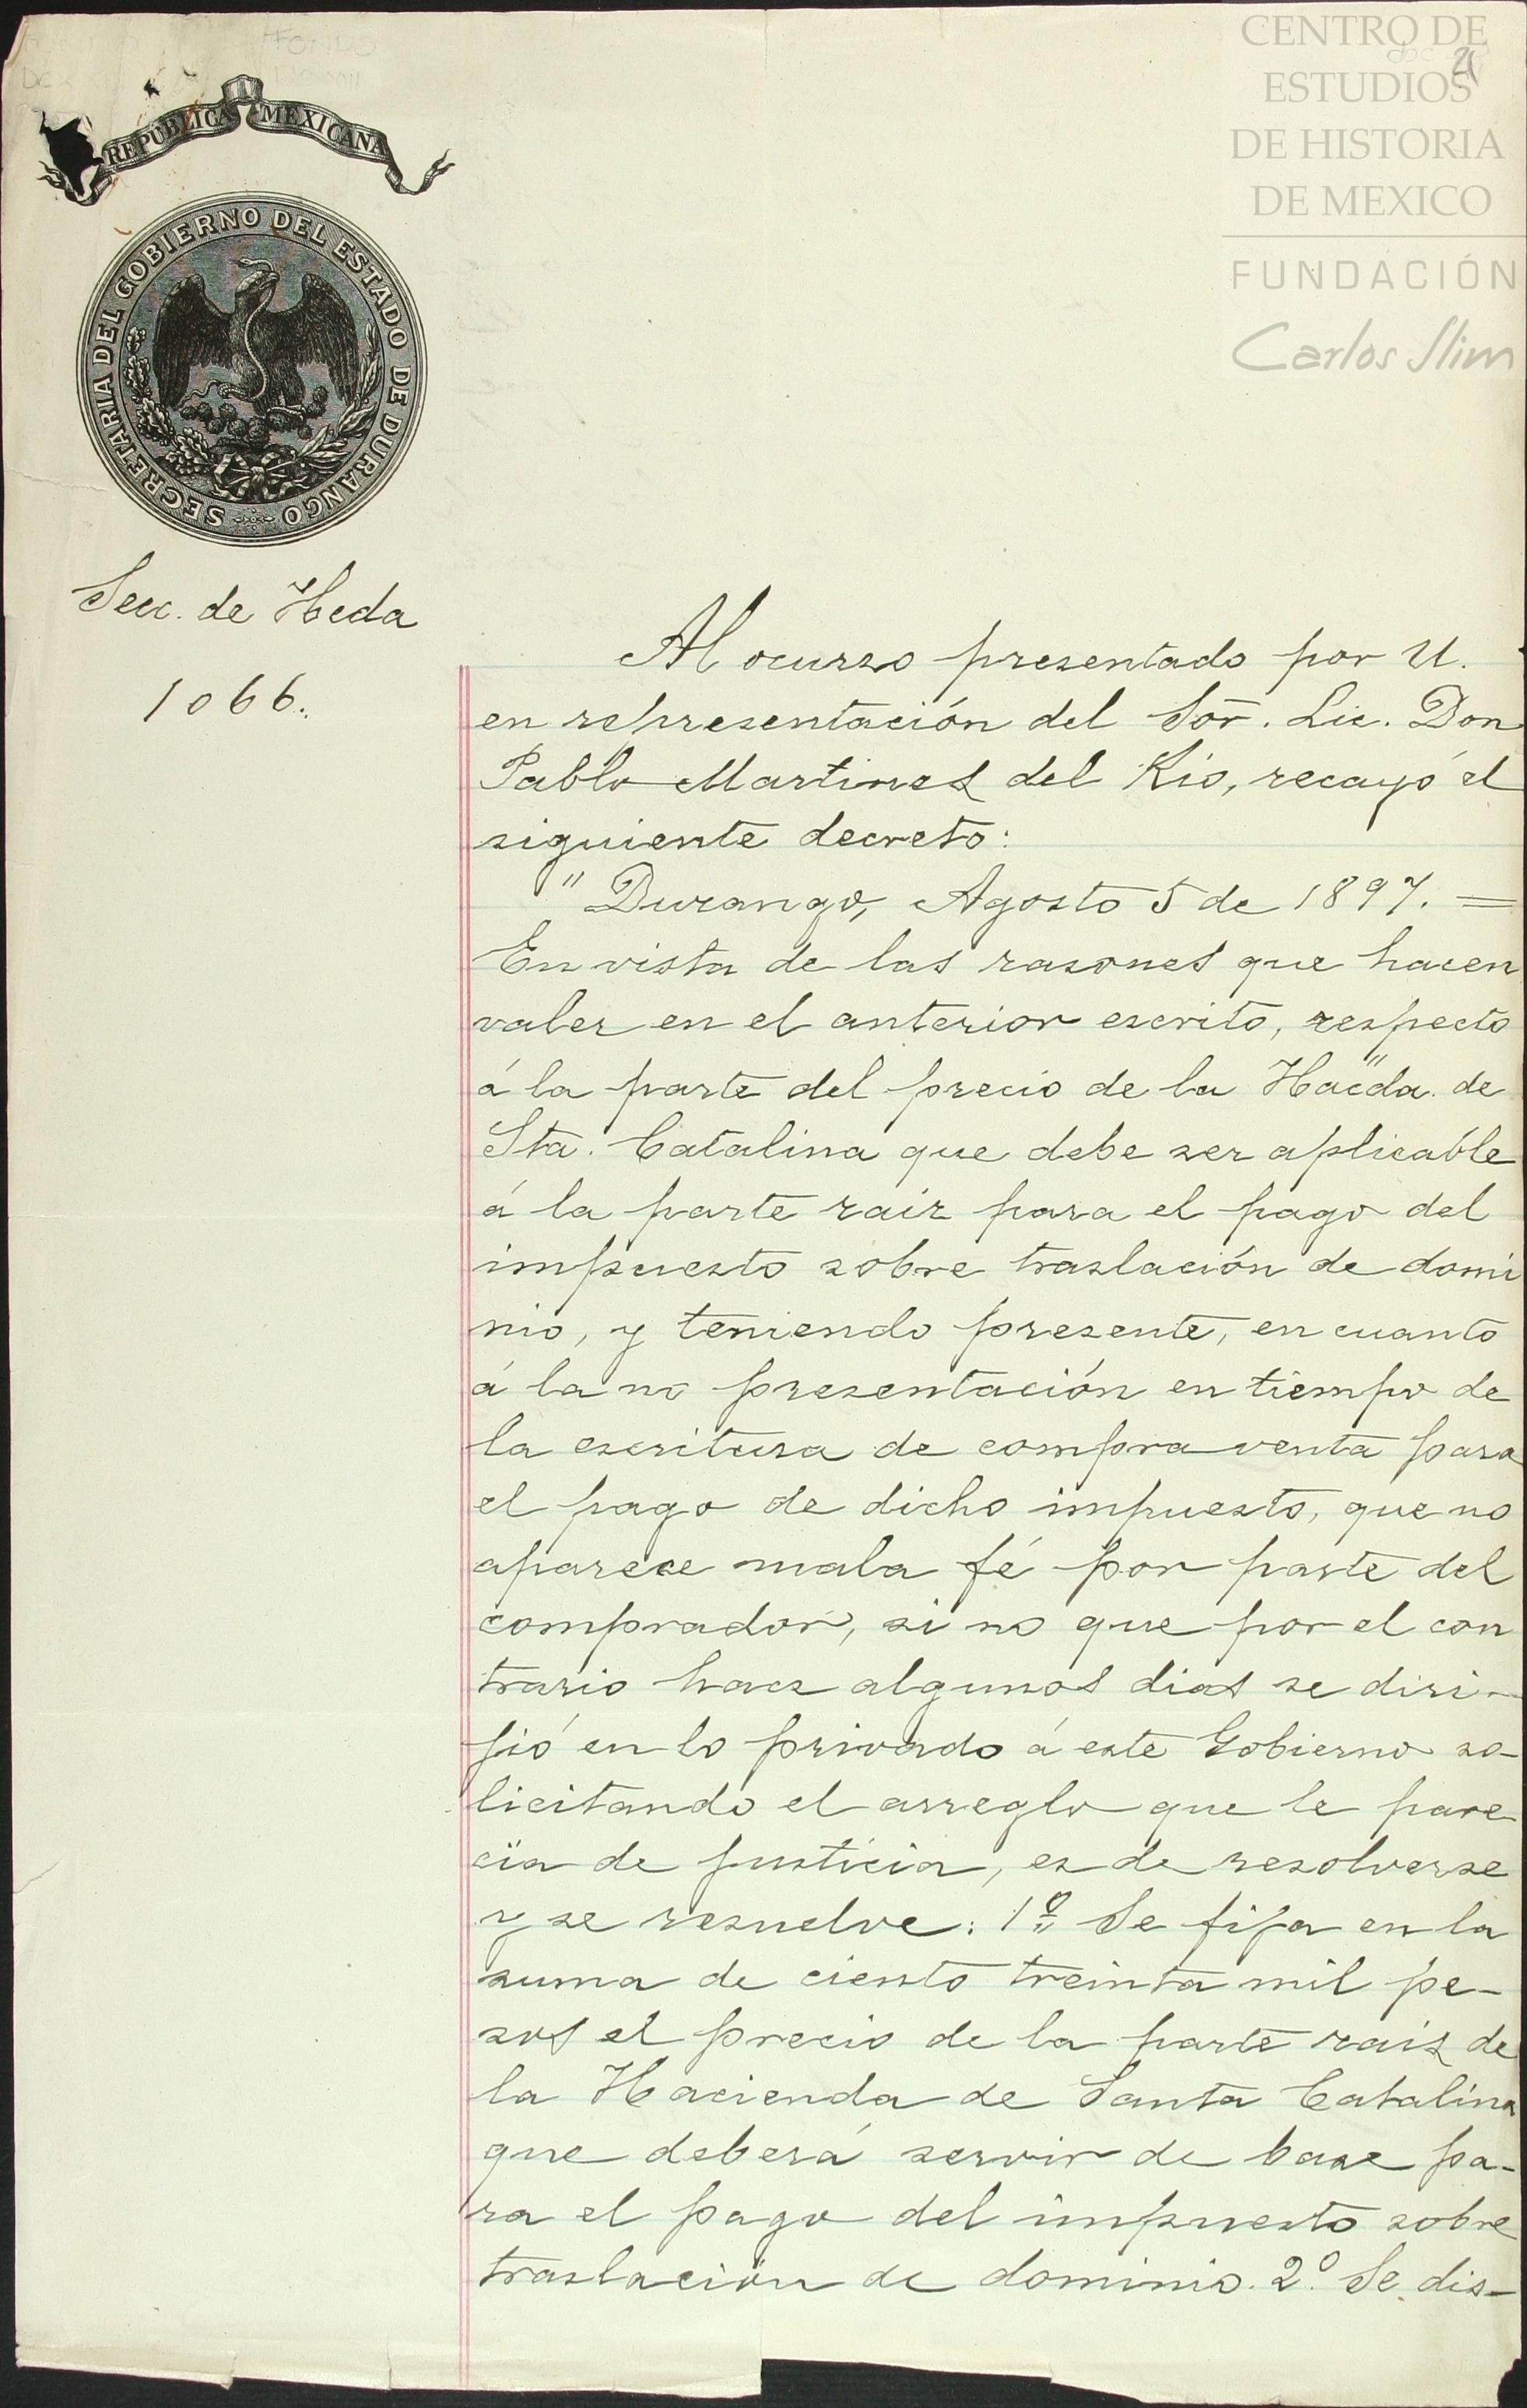 REPÚBLICA MEXICANA
SECRETARIA DEL GOBIERNO DEL ESTADO DE DURANGO
CENTRO DE
ESTUDIOS
DE HISTORIA
DE MEXICO
FUNDACIÓN
Carlos Slim
Secc. de Hcda
1066.
Al ocurso presentado por U.
en representación del Sor. Lic. Don
Pablo Martinez del Rio, recayó el
siguiente decreto:
"Durango, Agosto 5 de 1897. =
En vista de las rasones que hacen
valer en el anterior escrito, respecto
á la parte del precio de la Hacda. de
Sta. Catalina que debe ser aplicable
á la parte raiz para el pago del
impuesto sobre traslación de domi
nio, y teniendo presente, en cuanto
á la no presentación en tiempo de
la escritura de compra venta para
el pago de dicho impuesto, que no
aparece mala fé por parte del
comprador, si no que por el con
trario hace algunos dias se diri-
jió en lo privado á este Gobierno so-
licitando el arreglo que le pare
cia de justicia, es de resolverse
y se resuelve: 1º Se fija en la
suma de ciento treinta mil pe-
sos el precio de la parte raiz de
la Hacienda de Santa Catalina
que deberá servir de base pa-
ra el pago del impuesto sobre
traslación de dominio. 2º Se dis-